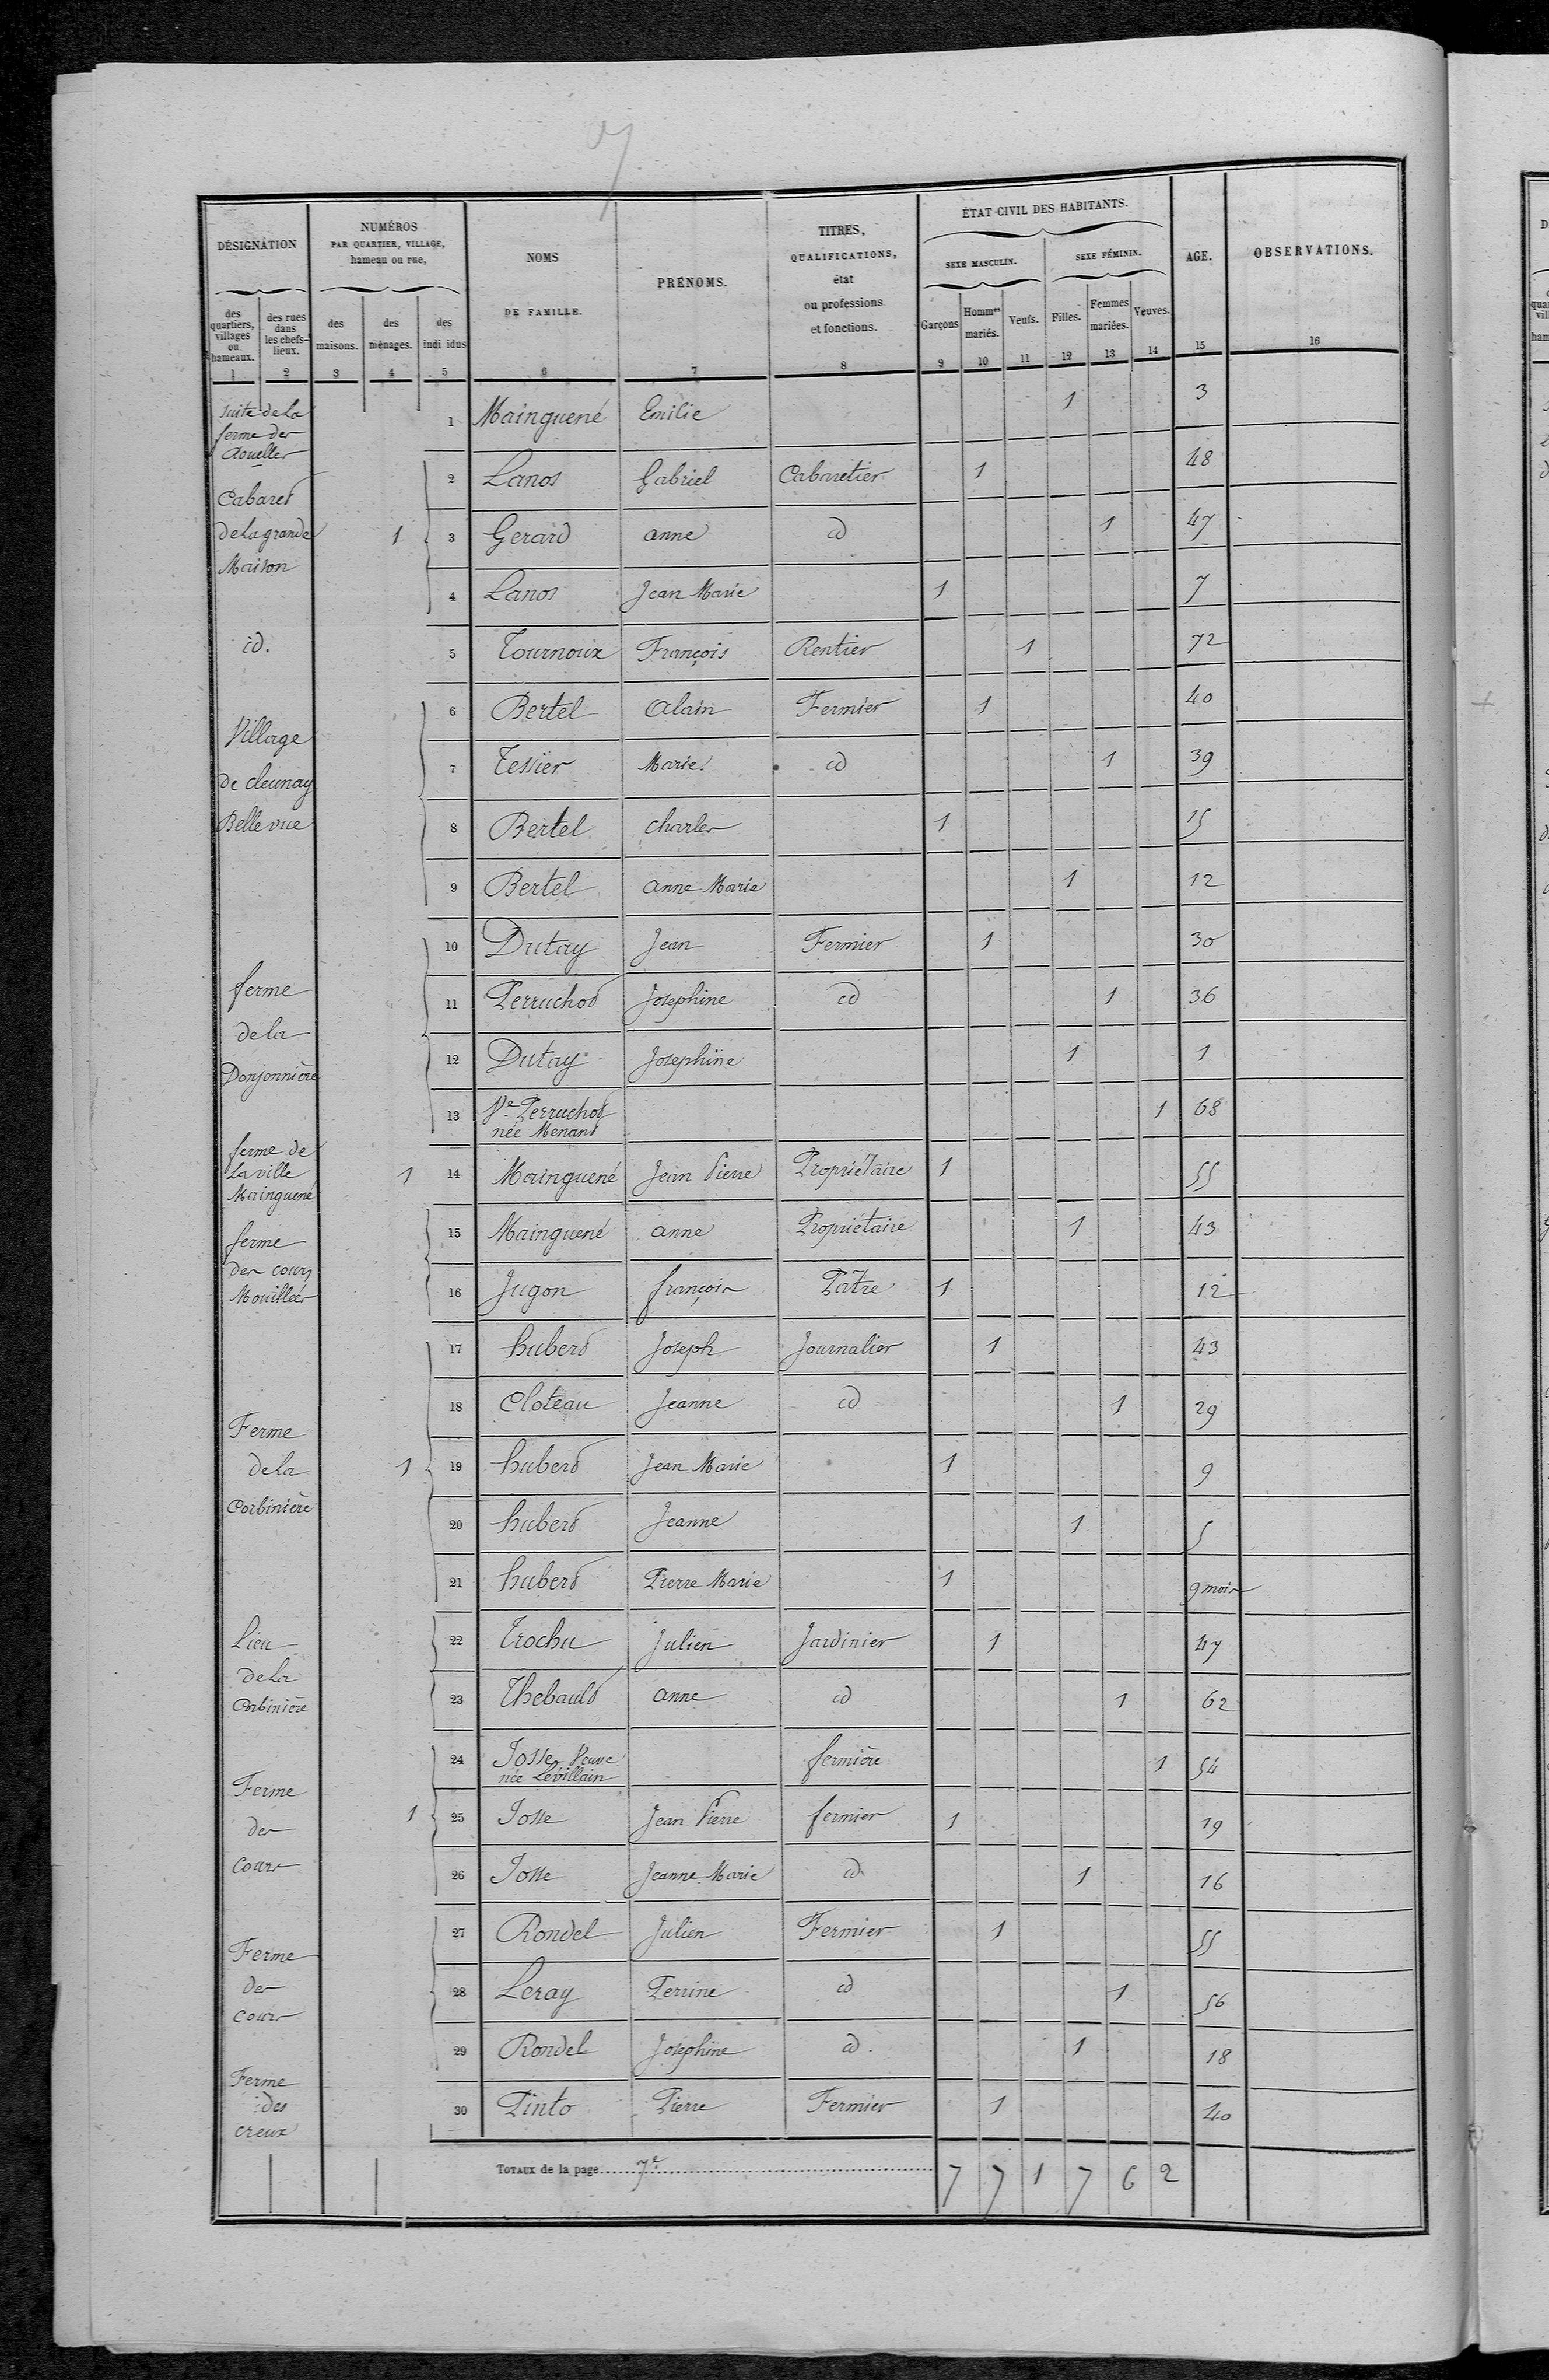 7
DÉSIGNATION
NUMÉROS
PAR QUARTIER, VILLAGE,
hameau ou rue,
NOMS
DE FAMILLE.
PRÉNOMS.
TITRES,
QUALIFICATIONS,
état
ou professions
et fonctions.
ÉTAT-CIVIL DES HABITANTS.
SEXE MASCULIN.
SEXE FÉMININ.
AGE.
OBSERVATIONS.
des quartiers, villages ou hameaux.
des rues dans les chefs-lieux.
des maisons.
des ménages.
des indi idus
Garçons
Hommes mariés.
Veufs.
Filles.
Femmes mariées.
Veuves.
1 2 3 4 5 6 7 8 9 10 11 12 13 14 15 16
suite de la ferme des
1 Mainguené Emilie 1 3
Cabaret de la grande Maison
2 Lanos Gabriel Cabaretier 1 48
1 3 Gerard anne id 1 47
4 Lanos Jean Marie 1 7
id. 5 Tournoux François Rentier 1 72
Village de cleunay Belle vue
6 Bertel alain Fermier 1 40
7 Tessier Marie id 1 39
8 Bertel charles 1 15
9 Bertel anne Marie 1 12
ferme de la Donjonnière
10 Dutay Jean Fermier 1 30
11 Perruchot Josephine id 1 36
12 Dutay Josephine 1 1
13 Ve Perruchot née Menand 1 68
ferme de La ville Mainguené
1 14 Mainguené Jean Pierre Propriétaire 1 55
ferme des cours Mouillées
15 Mainguené anne Propriétaire 1 43
16 Jugon françois Pâtre 1 12
Ferme de la Corbinière
17 hubert Joseph Journalier 1 43
18 Cloteau Jeanne id 1 29
1 19 hubert Jean Marie 1 9
20 hubert Jeanne 1 5
21 hubert Pierre Marie 1 9 mois
Lieu de la Corbinière
22 Trochu Julien Jardinier 1 47
23 Thebault anne id 1 62
Ferme des Cours
24 Josse Veuve née Levillain fermière 1 54
1 25 Josse Jean Pierre fermier 1 19
26 Josse Jeanne Marie id 1 16
Ferme des cours
27 Rondel Julien Fermier 1 55
28 Leray Perrine id 1 56
29 Rondel Josephine id. 1 18
Ferme des creux
30 Pinto Pierre Fermier 1 40
TOTAUX de la page 7e 7 7 1 7 6 2